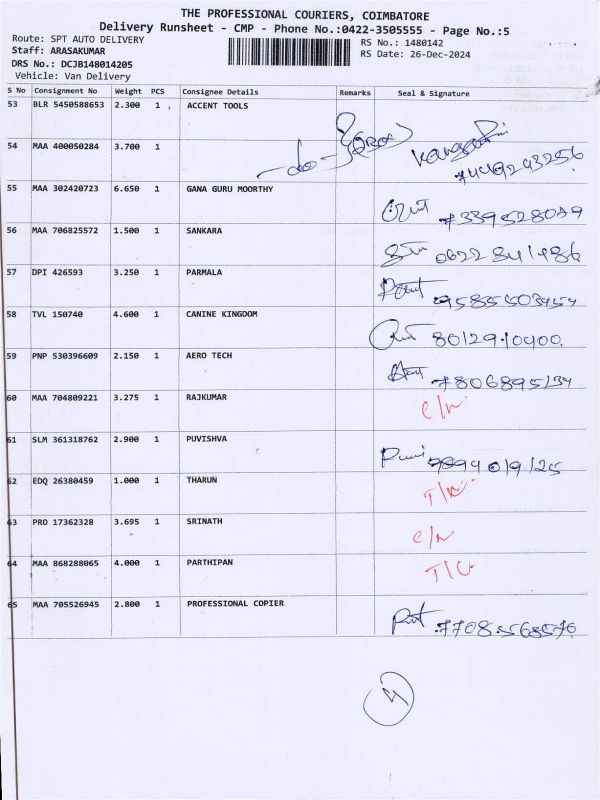 THE PROFESSIONAL COURIERS, COIMBATORE
Delivery Runsheet - CMP - Phone No.:0422-3505555 - Page No.:5
Route: SPT AUTO DELIVERY RS No.: 1480142
Staff: ARASAKUMAR RS Date: 26-Dec-2024
DRS No.: DCJB148014205
Vehicle: Van Delivery
S No Consignment No Weight PCS Consignee Details Remarks Seal & Signature
53 BLR 5450588653 2.300 1 ACCENT TOOLS
54 MAA 400050284 3.700 1 -do-
55 MAA 302420723 6.650 1 GANA GURU MOORTHY
56 MAA 706825572 1.500 1 SANKARA
57 DPI 426593 3.250 1 PARMALA
58 TVL 150740 4.600 1 CANINE KINGDOM
59 PNP 530396609 2.150 1 AERO TECH 7806895134
60 MAA 704809221 3.275 1 RAJKUMAR
61 SLM 361318762 2.900 1 PUVISHVA
62 EDQ 26380459 1.000 1 THARUN
63 PRO 17362328 3.695 1 SRINATH
64 MAA 868288065 4.000 1 PARTHIPAN
65 MAA 705526945 2.800 1 PROFESSIONAL COPIER 7708568576
4